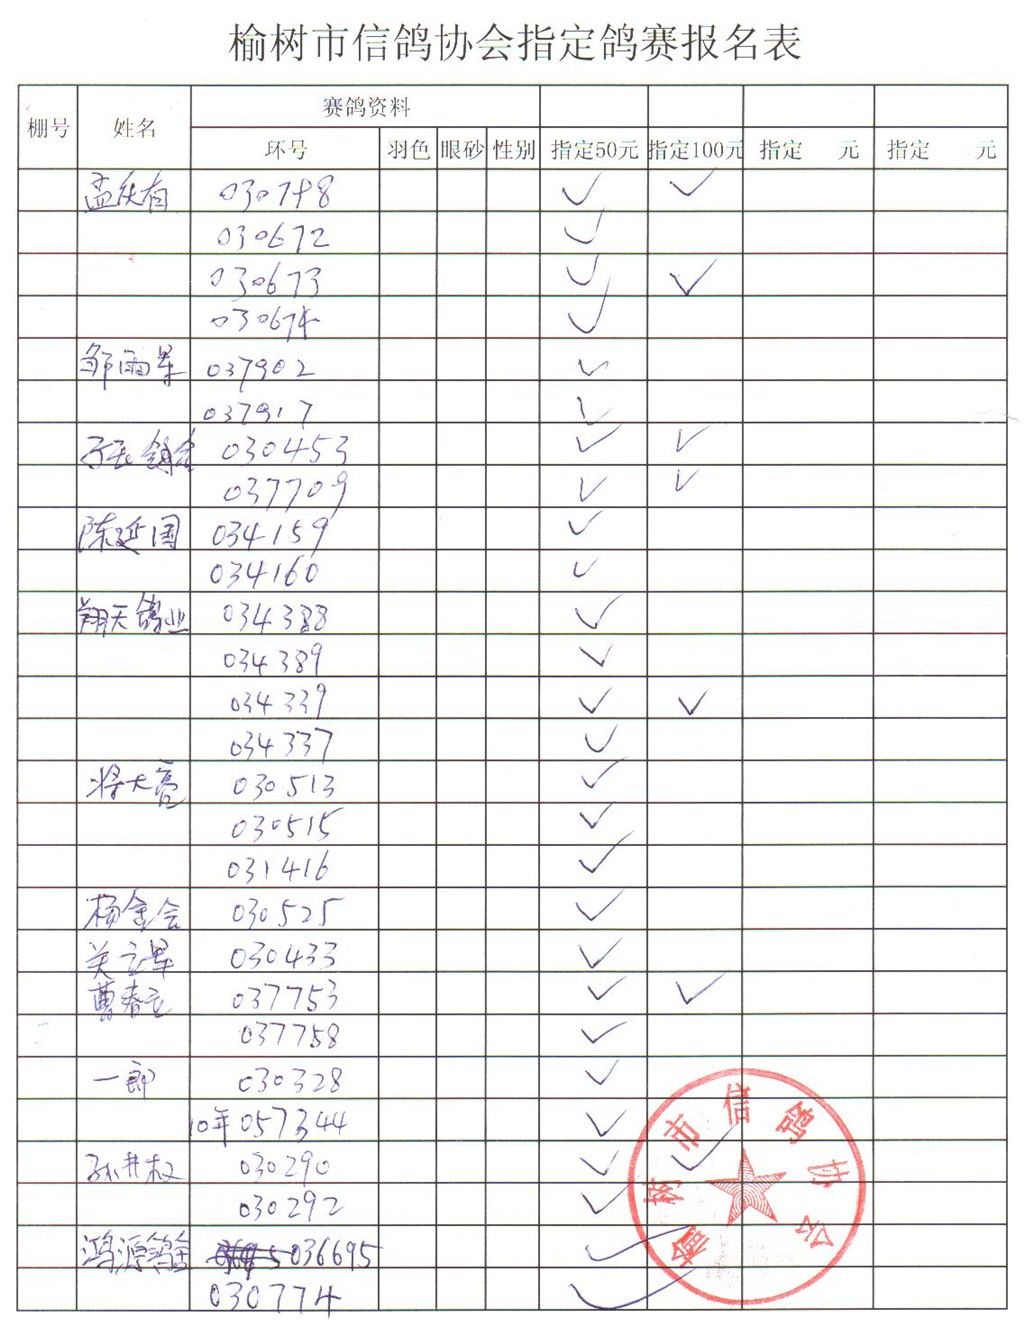 榆树市信鸽协会指定鸽赛报名表
棚号 姓名 赛鸽资料
环号 羽色 眼砂 性别 指定50元 指定100元 指定 元 指定 元
孟庆有 030748 ✓ ✓
030672 ✓
030673 ✓ ✓
030674 ✓
邹雨 037902 ✓
037917 ✓
030453 ✓ ✓
037709 ✓ ✓
陈延国 034159 ✓
034160 ✓
翔天鸽业 034388 ✓
034389 ✓
034339 ✓ ✓
034337 ✓
将大亮 030513 ✓
030515 ✓
031416 ✓
杨金会 030525 ✓
关立军 030433 ✓
曹春 037753 ✓ ✓
037758 ✓
一郎 030328 ✓
10年057344 ✓
孙井权 030290 ✓ ✓
030292 ✓
鸿源鸽舍 036695 ✓
030774 ✓
榆树市信鸽协会